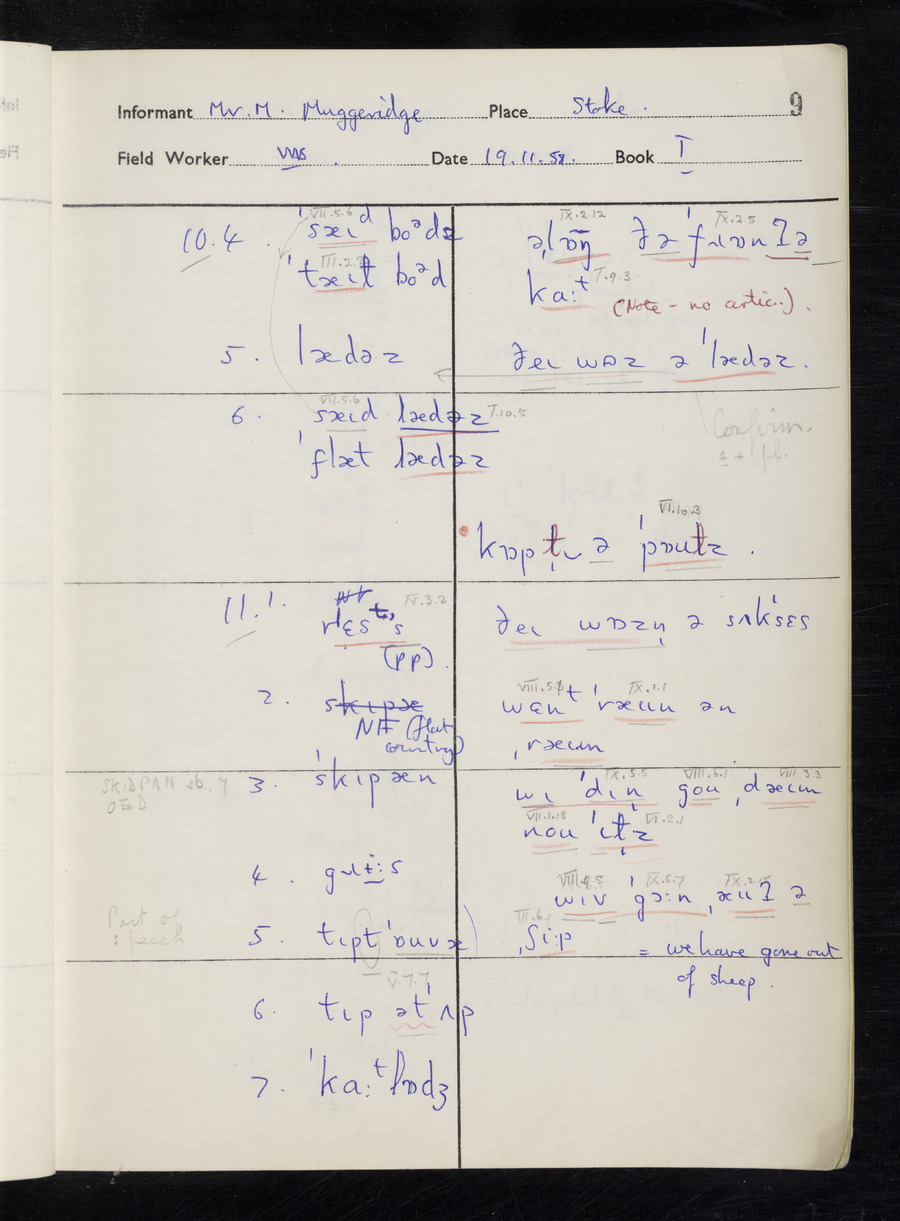 Informant Mr. M. Muggeridge Place Stoke. 9
Field Worker Date 19.11.58. Book I
10.4 VII.5.6 ˈsæɪd boᵊdz
III.2.7 ˈtæɪt boᵊd
IX.2.12 IX.2.5
ðə ˈfɹɒnʔ ə
kaːᵗ I.9.3
(Note - no artic..).
5. lædəz
ðeɪ wɒz ə ˈlædəz.
6. VII.5.6 sæɪd lædəz I.10.5
ˈflæt lædəz
Confirm.
a + pl.
VI.10.3
ə ˈpɒutz.
11.1. IV.3.2
(pp).
ðeɪ wɒzn̩ ə sʌkˈsɛs
2. skɪpæ
NF (flat
country)
VIII.5.1 IX.1.1
wɛnᵗ ˈræun ən
ˌræun
SKIDPAN sb., 7
OED
3. ˈskɪpæn
IX.5.5 VIII.6.1 VIII.3.3
wɪ ˈdɪn̩ gou ˌdæun
VII.1.18 VI.2.1
nou ˈɪt̩z
4.
VIII.8.5 IX.5.7 IX.2.15
wɪv ˈgɔːn ˌæuʔ ə
III.6.1
ˌʃiːp = we have gone out
of sheep.
Part of
speech
5. tɪpt ˈɒuvə
V.7.7
6. tɪp ətˈʌp
7. ˈkaːᵗlɒdʒ